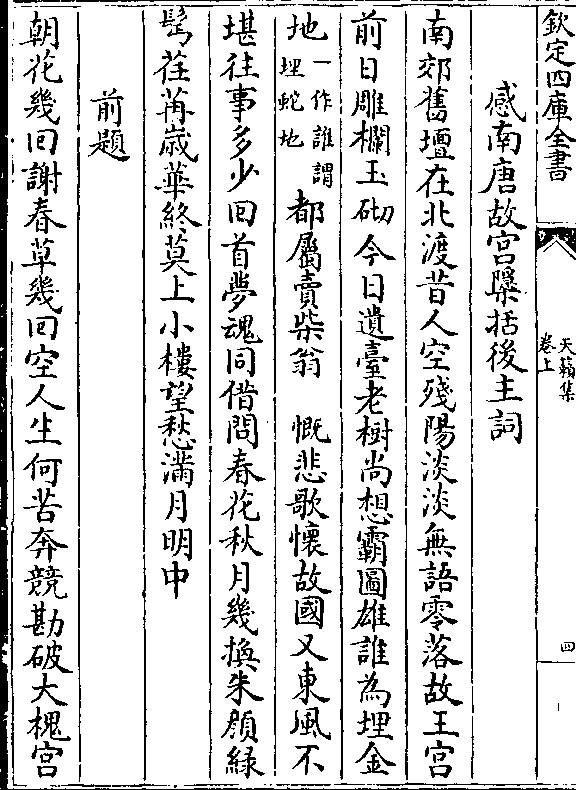 欽定四庫全書
天籟集
卷上
四
感南唐故宮櫽括後主詞
南郊舊壇在北渡昔人空殘陽淡淡無語零落故王宮
前日雕欄玉砌今日遺臺老樹尚想霸圖雄誰為埋金
地一作誰謂埋蛇地都屬賣柴翁　慨悲歌懷故國又東風不
堪往事多少回首夢魂同借問春花秋月幾換朱顔緑
髩荏苒歳華終莫上小樓望愁滿月明中
前題
朝花幾回謝春草幾回空人生何苦奔競勘破大槐宮